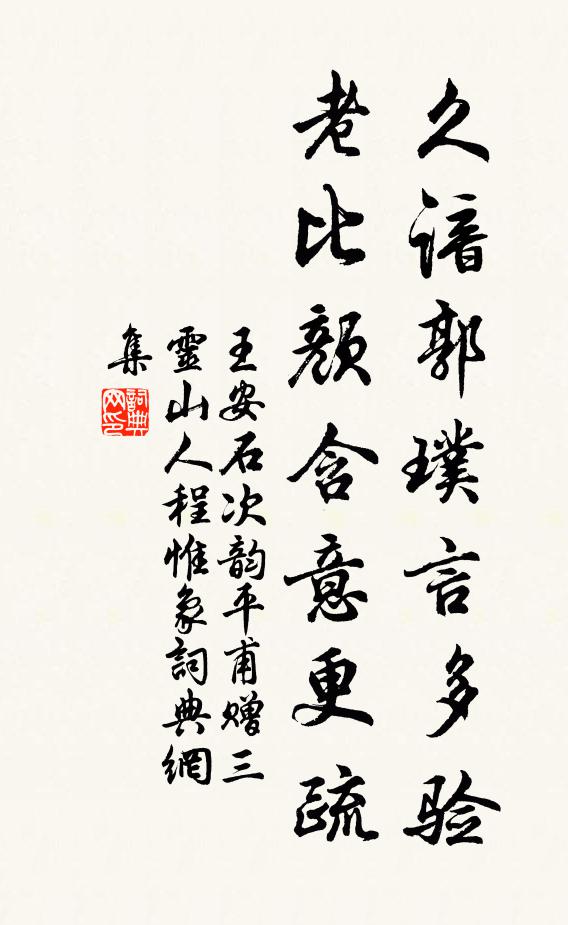 久谙郭璞言多验
老比颜含意更疏
王安石次韵平甫赠三
靈山人程惟象詞典網
集
詞典
网印